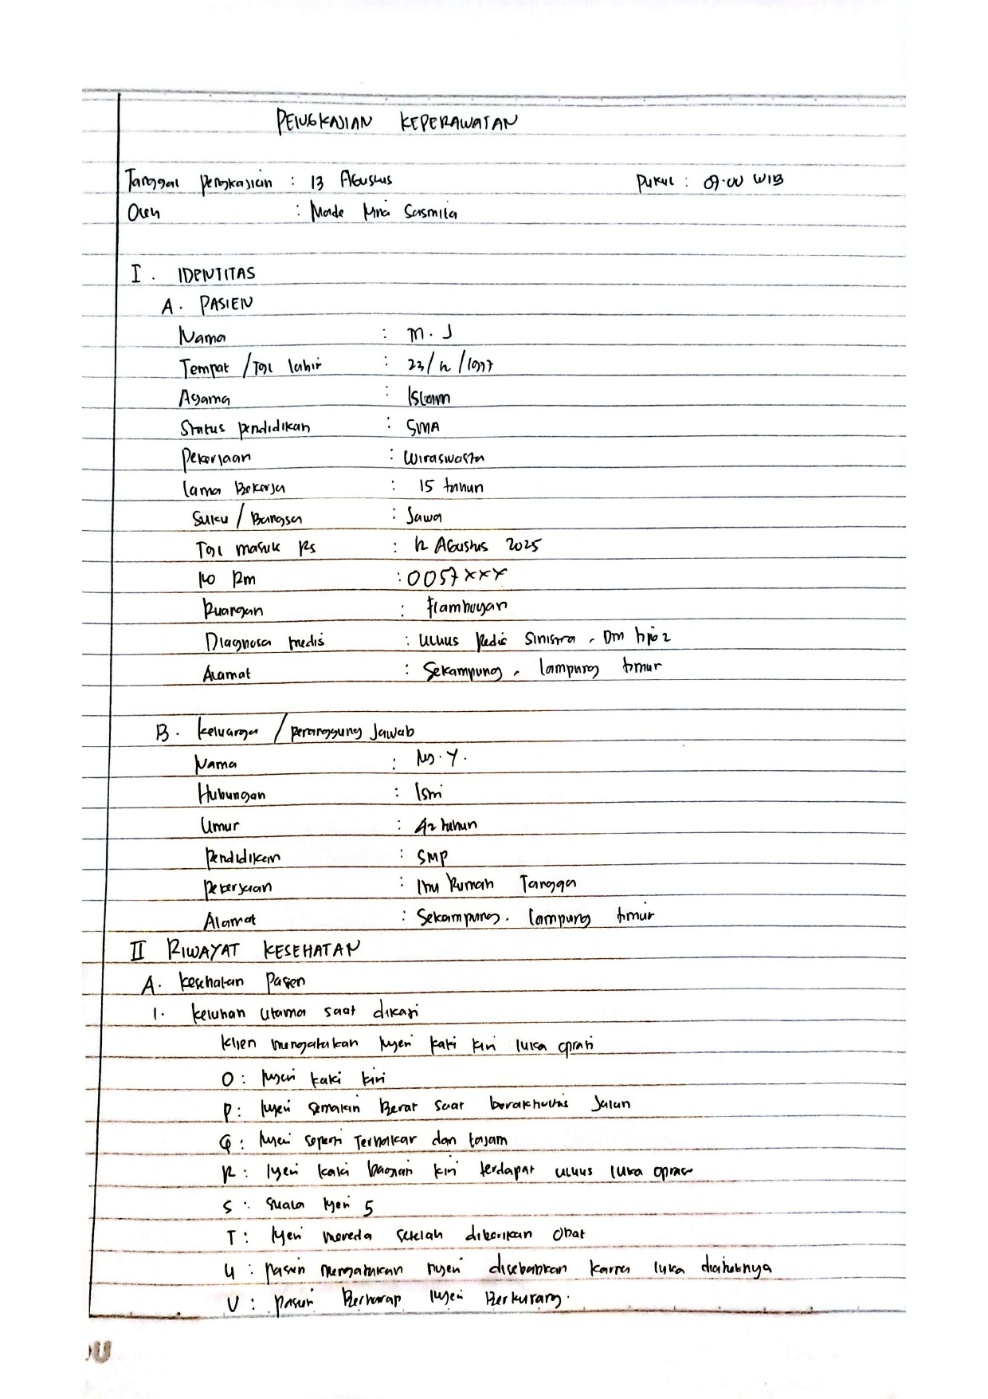 PENGKAJIAN KEPERAWATAN
Tanggal Pengkajian : 13 Agustus Pukul : 09.00 WIB
Oleh : Made Sasmita
I. IDENTITAS
A. PASIEN
Nama : M. J
Tempat / Tgl lahir : 23/12/1977
Agama : Islam
Status pendidikan : SMA
Pekerjaan : Wiraswasta
lama Bekerja : 15 tahun
Suku / Bangsa : Jawa
Tgl masuk Rs : 12 Agustus 2025
No Rm : 0057xxx
Ruangan : Flamboyan
Diagnosa medis : Ulkus Pedis Sinistra, Dm tipe 2
Alamat : Sekampung, lampung timur
B. Keluarga / penanggung Jawab
Nama : Ny. Y.
Hubungan : Istri
Umur : 42 tahun
Pendidikan : SMP
Pekerjaan : Ibu Rumah Tangga
Alamat : Sekampung, lampung timur
II RIWAYAT KESEHATAN
A. Kesehatan Pasien
1. Keluhan Utama saat dikaji
Klien mengatakan Nyeri kaki kiri luka oprasi
O : Nyeri kaki kiri
P : Nyeri semakin Berat saat berakhvitas Jalan
Q : Nyeri seperti Terbakar dan tajam
R : Nyeri kaki bagian kiri terdapat ulkus luka oprasi
S : Skala Nyeri 5
T : Nyeri mereda setelah diberikan Obat
U : pasien mengatakan nyeri disebabkan karna luka diabetnya
V : Pasien Berharap Nyeri Berkurang.